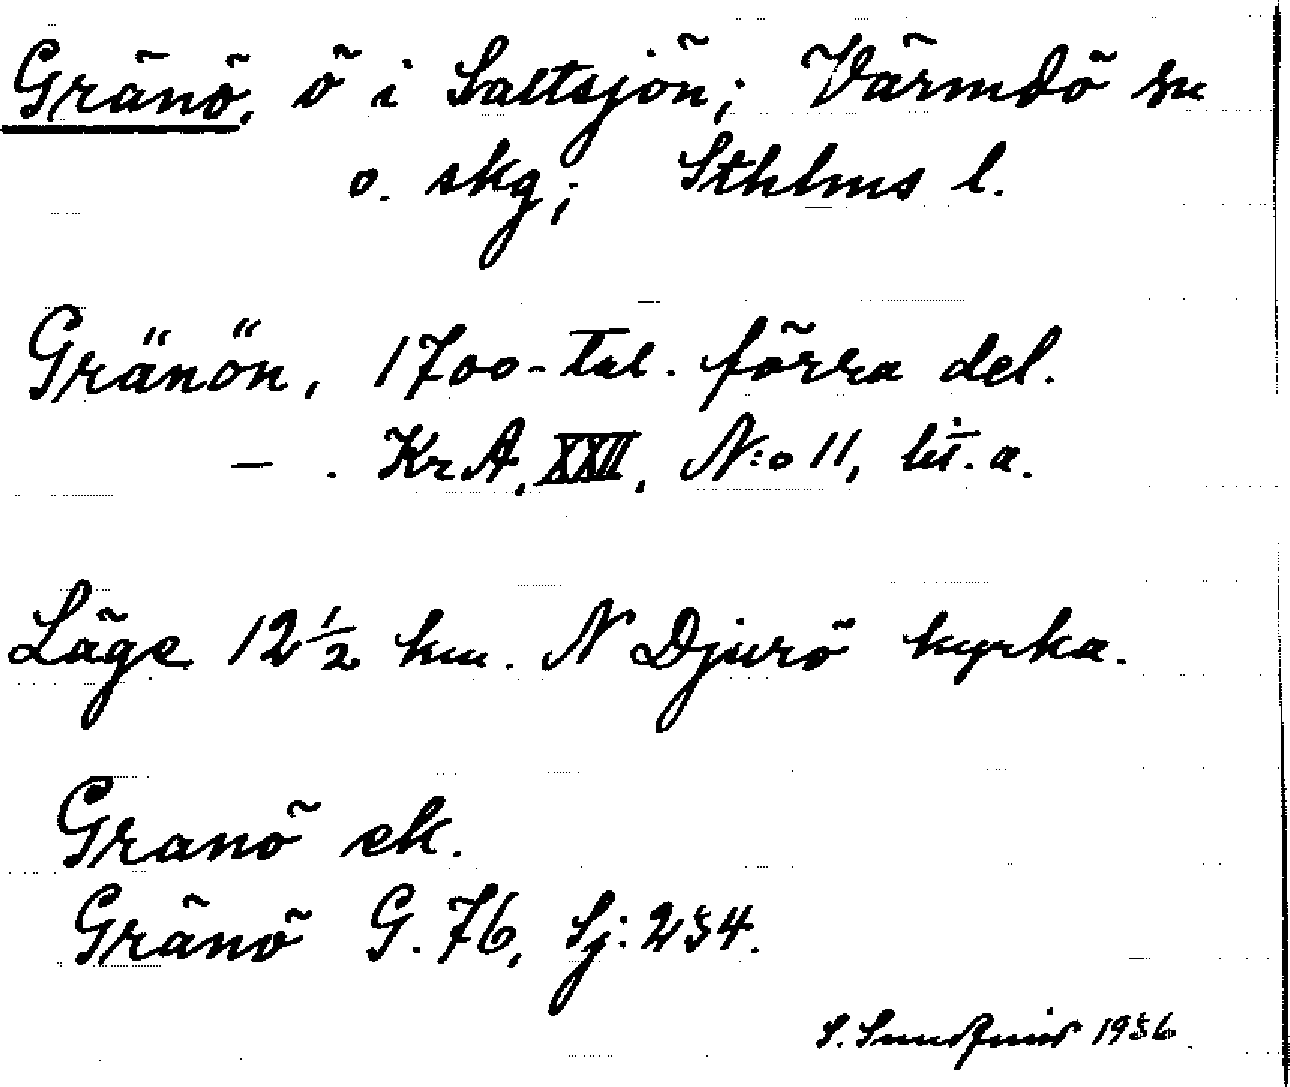 Gränö, ö i Saltsjön; Värmdö sn
o. skg; Sthlms l.
Gränön, 1700-tal. förra del.
— . Kr A, XXII, N:o 11, lit. a.
Läge 12 1/2 km. N Djurö kyrka.
Granö ek.
Gränö G. 76, Sj: 234.
S. 1936